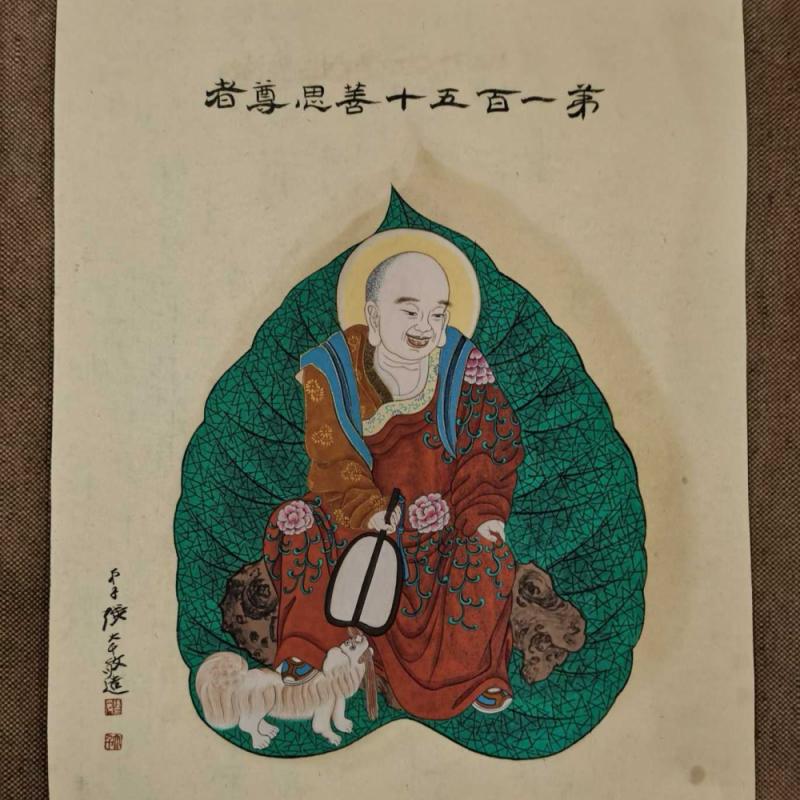 第一百五十善思尊者
弟子張大千敬造